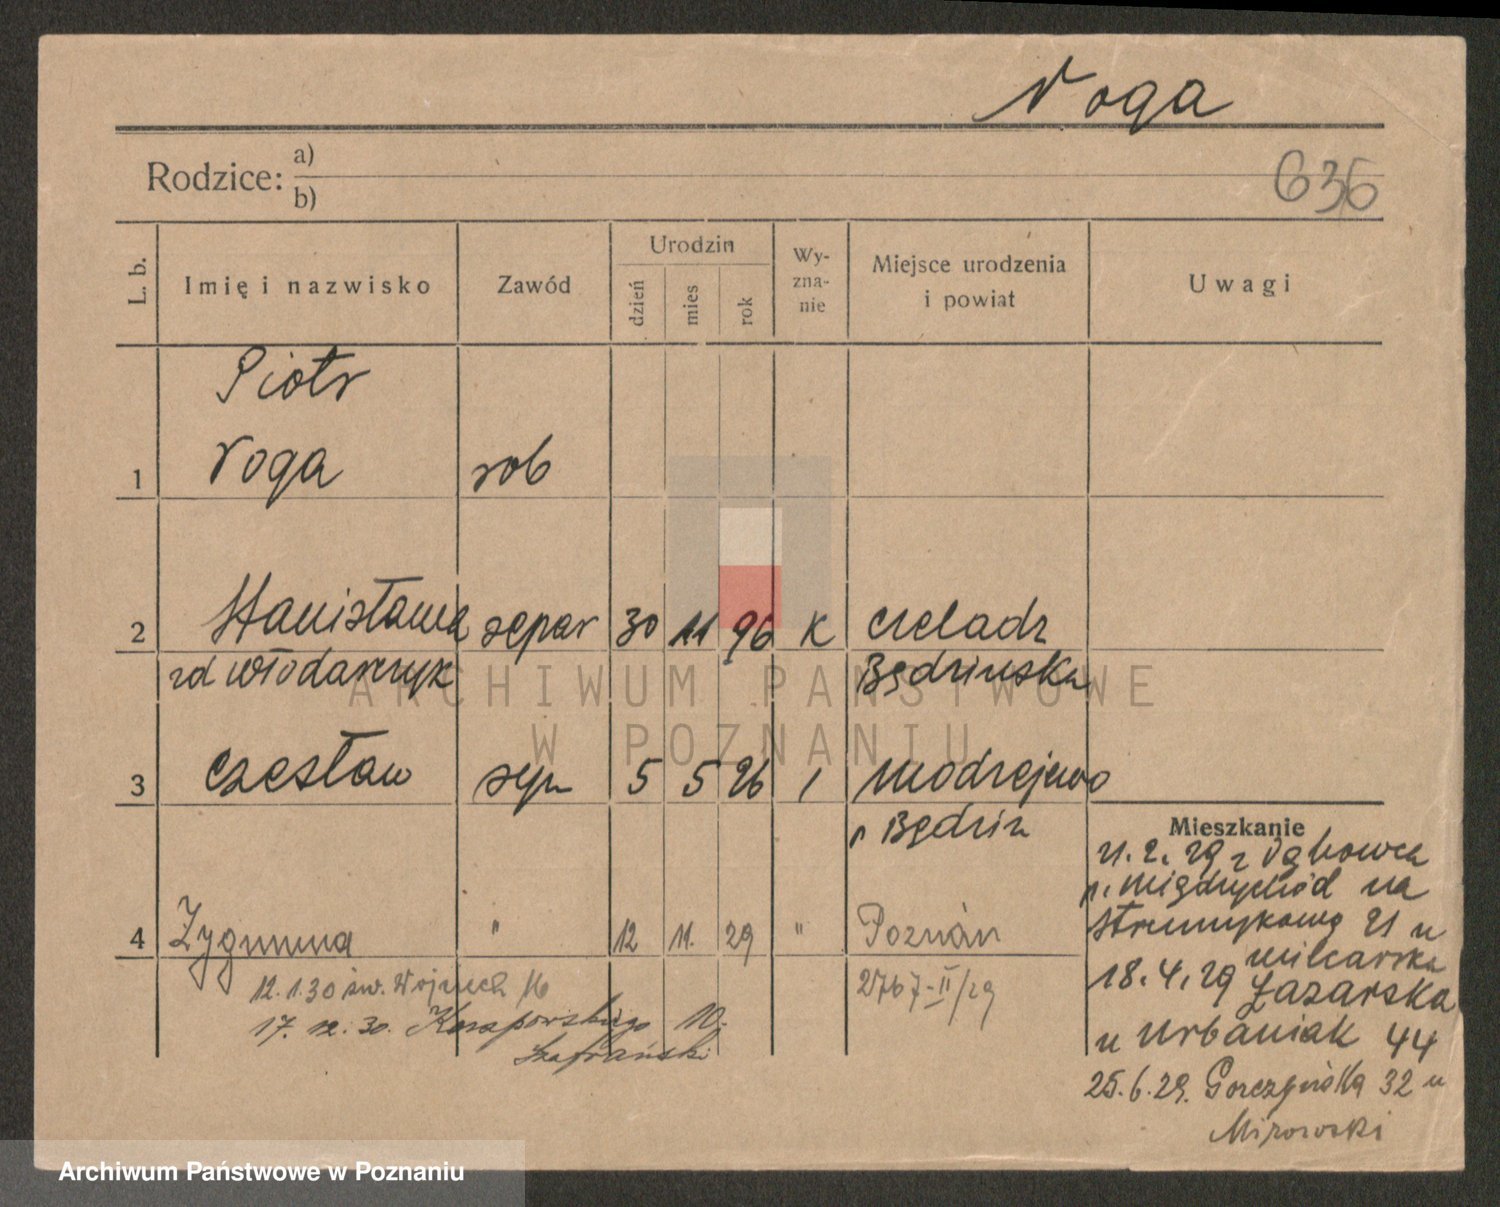 Voga
Rodzice: a)
b)
636
L. b.
Imię i nazwisko
Zawód
Urodzin
dzień
mies
rok
Wy-
zna-
nie
Miejsce urodzenia
i powiat
Uwagi
Piotr
1 Voga rob
2 Stanisława separ 30 11 96 K Czeladz
zd Włodarczyk Będzinska
3 Czesław syn 5 5 26 Modrzejewo
p Będzin
4 Zygmunt " 12 11. 29 " Poznán
12.1.30 św. Wojciech 16
2767-II/29
17. 12. 30. 10.
Szafrański
Mieszkanie
p. Międzychód na
Strumykową 21 u
18.4.29 Łazarska
u Urbaniak 44
25.6.29. Gorczyńska 32 u
ARCHIWUM PAŃSTWOWE
W POZNANIU
Archiwum Państwowe w Poznaniu